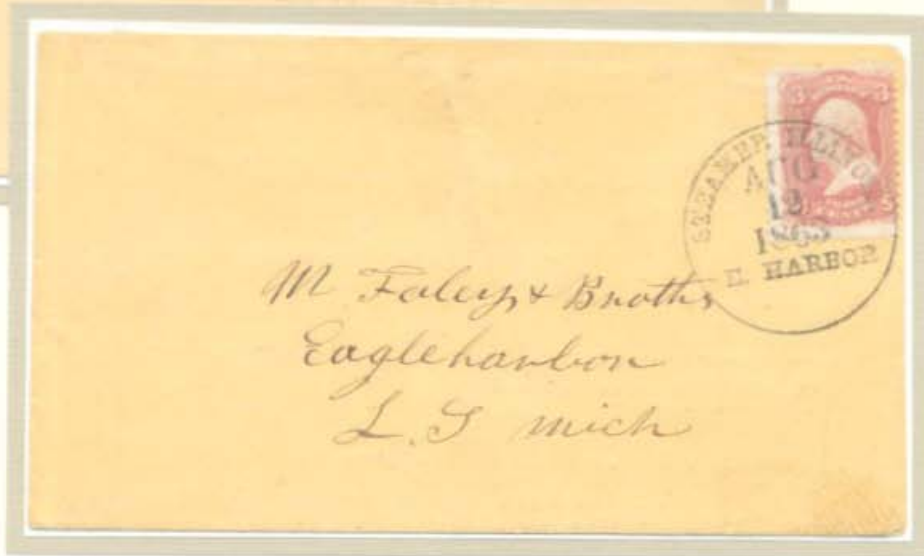 STEAMER ILLINOIS
AUG
12
1863
E. HARBOR
3 3
M Foley & Broths
Eagleharbor
L. S mich